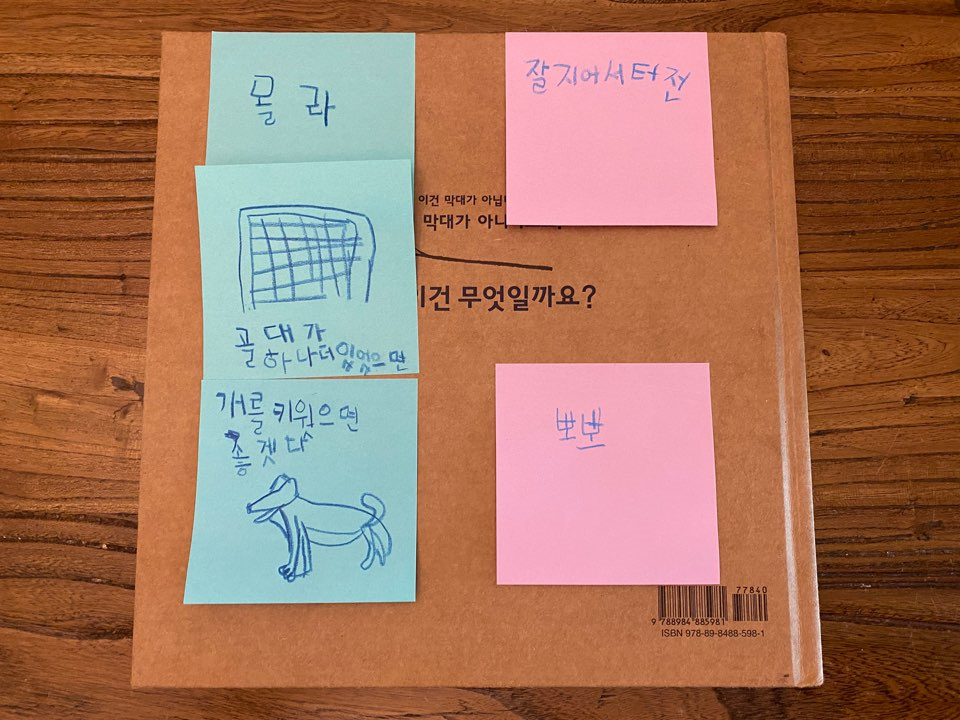 몰라
잘지어서터전
이건 막대가 아닙
막대가 아니
이건 무엇일까요?
골대가
하나더있었으면
개를키웠으면
좋겟다
뽀뽀
77840
9 788984 885981
ISBN 978-89-8488-598-1